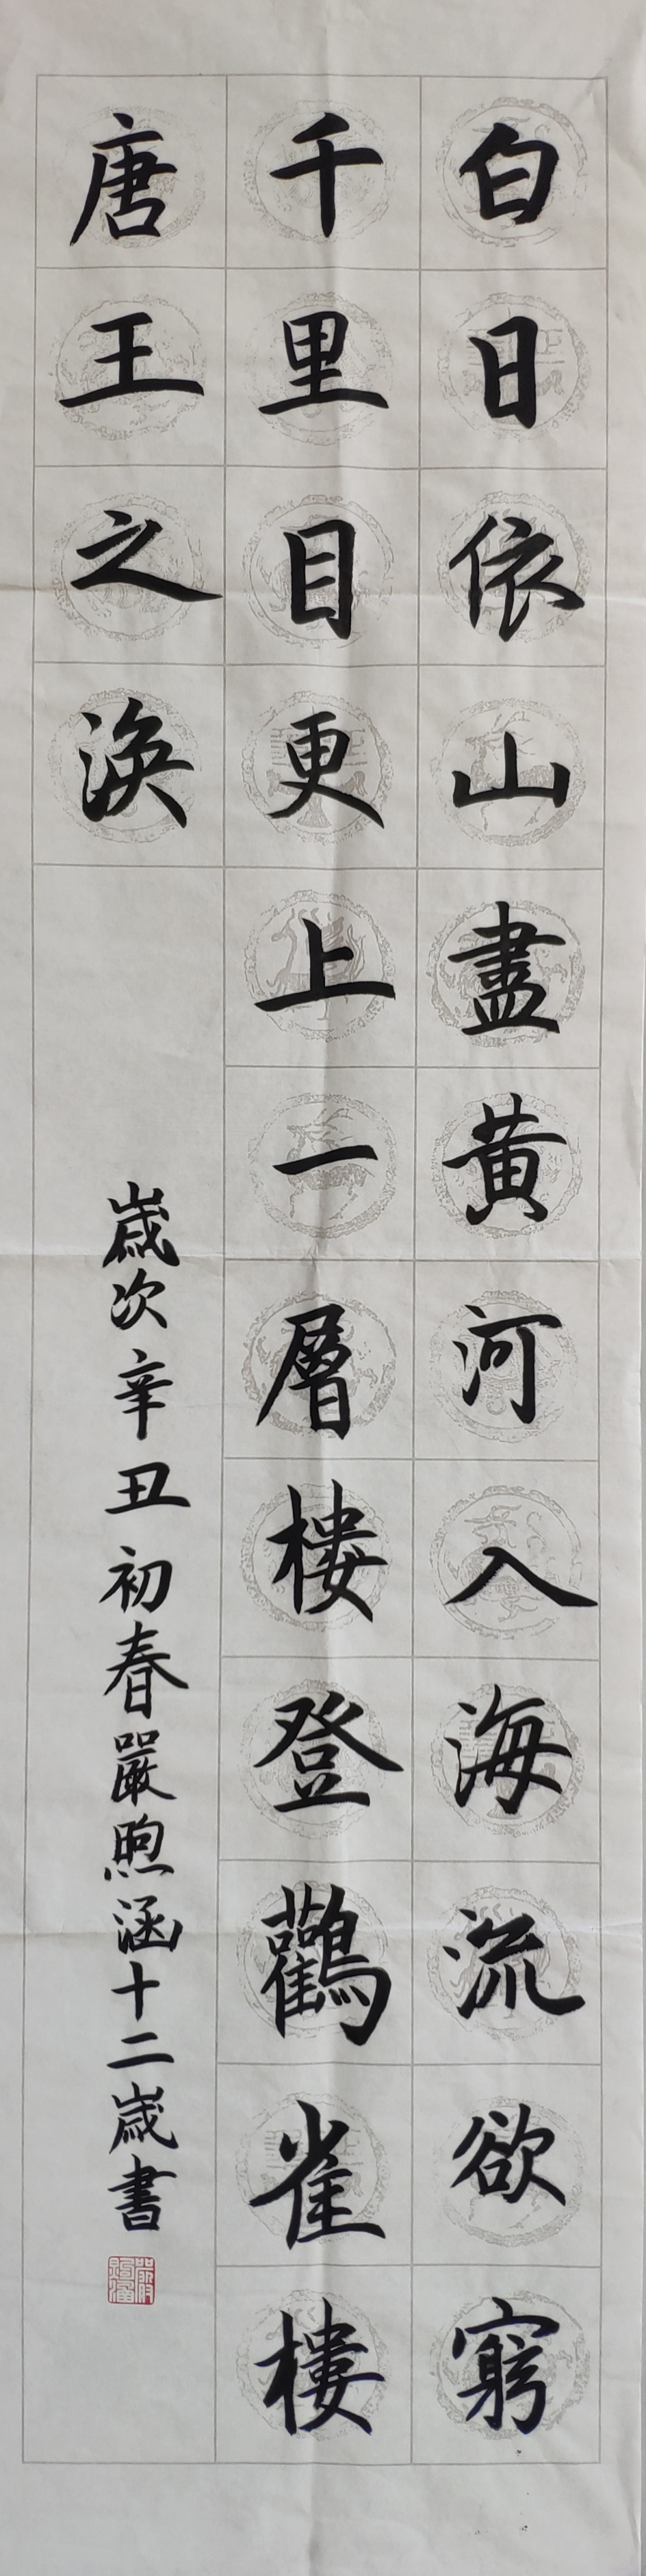 白日依山盡黄河入海流欲窮
千里目更上一層樓登鸛雀樓
唐王之渙
歲次辛丑初春嚴煦涵十二歲書